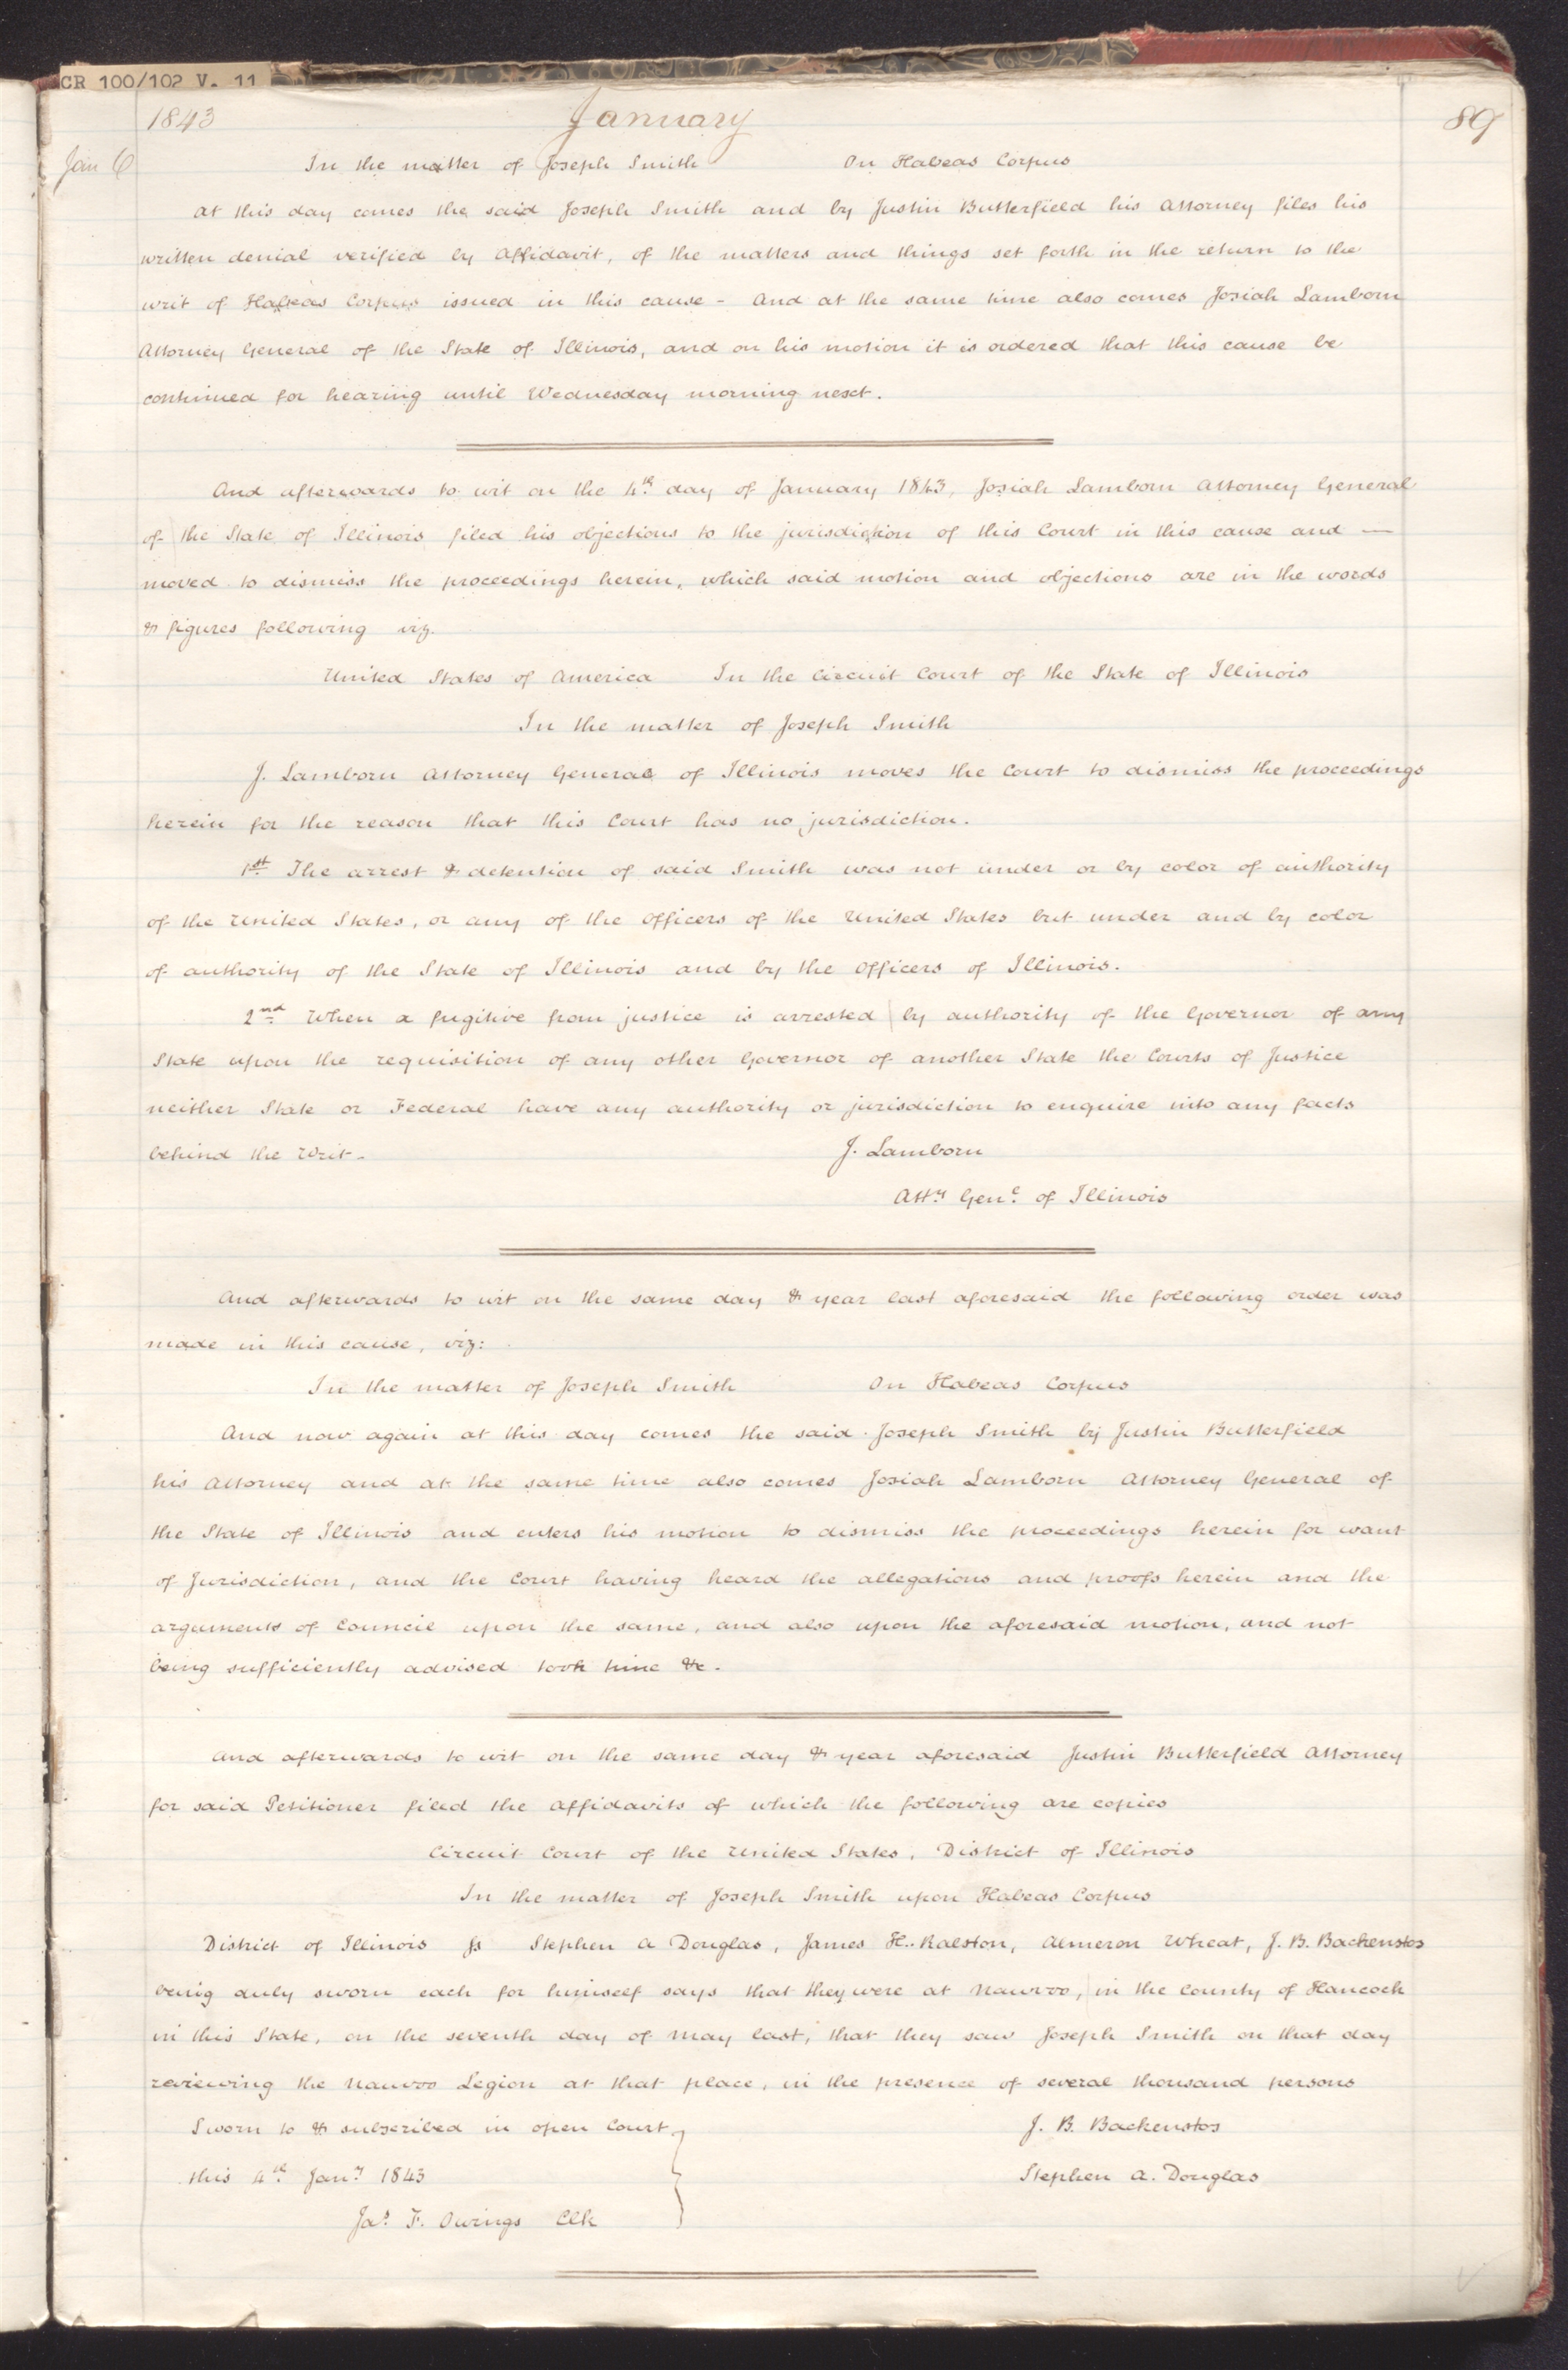 CR 100/102 V. 11
1843 January 89
Jan 6
In the matter of Joseph Smith On Habeas Corpus
At this day comes the said Joseph Smith and by Justin Butterfield his Attorney files his
written denial verified by Affidavit, of the matters and things set forth in the return to the
writ of Habeas Corpus issued in this cause - And at the same time also comes Josiah Lamborn
Attorney General of the State of Illinois, and on his motion it is ordered that this cause be
continued for hearing until Wednesday morning next.
And afterwards to wit on the 4th day of January 1843, Josiah Lamborn Attorney General
of the State of Illinois filed his objections to the jurisdiction of this Court in this cause and —
moved to dismiss the proceedings herein, which said motion and objections are in the words
& figures following viz.
United States of America In the Circuit Court of the State of Illinois
In the matter of Joseph Smith
J. Lamborn Attorney General of Illinois moves the Court to dismiss the proceedings
herein for the reason that this Court has no jurisdiction.
1st The arrest & detention of said Smith was not under or by color of authority
of the United States, or any of the Officers of the United States but under and by color
of authority of the State of Illinois and by the Officers of Illinois.
2nd When a fugitive from justice is arrested by authority of the Governor of any
State upon the requisition of any other Governor of another State the Courts of Justice
neither State or Federal have any authority or jurisdiction to enquire into any facts
behind the Writ.
J. Lamborn
Atty Genl of Illinois
And afterwards to wit on the same day & year last aforesaid the following order was
made in this cause, viz:
In the matter of Joseph Smith On Habeas Corpus
And now again at this day comes the said Joseph Smith by Justin Butterfield
his Attorney and at the same time also comes Josiah Lamborn Attorney General of
the State of Illinois and enters his motion to dismiss the proceedings herein for want
of Jurisdiction, and the Court having heard the allegations and proofs herein and the
arguments of Council upon the same, and also upon the aforesaid motion, and not
being sufficiently advised took time &c.
And afterwards to wit on the same day & year aforesaid Justin Butterfield Attorney
for said Petitioner filed the affidavits of which the following are copies
Circuit Court of the United States, District of Illinois
In the matter of Joseph Smith upon Habeas Corpus
District of Illinois ss Stephen A Douglas, James H. Ralston, Almeron Wheat, J. B. Backenstos
being duly sworn each for himself says that they were at Nauvoo, in the County of Hancock
in this State, on the seventh day of May last, that they saw Joseph Smith on that day
reviewing the Nauvoo Legion at that place, in the presence of several thousand persons
Sworn to & subscribed in open Court J. B. Backenstos
this 4th Jany 1843 Stephen A. Douglas
Jas F. Owings Clk